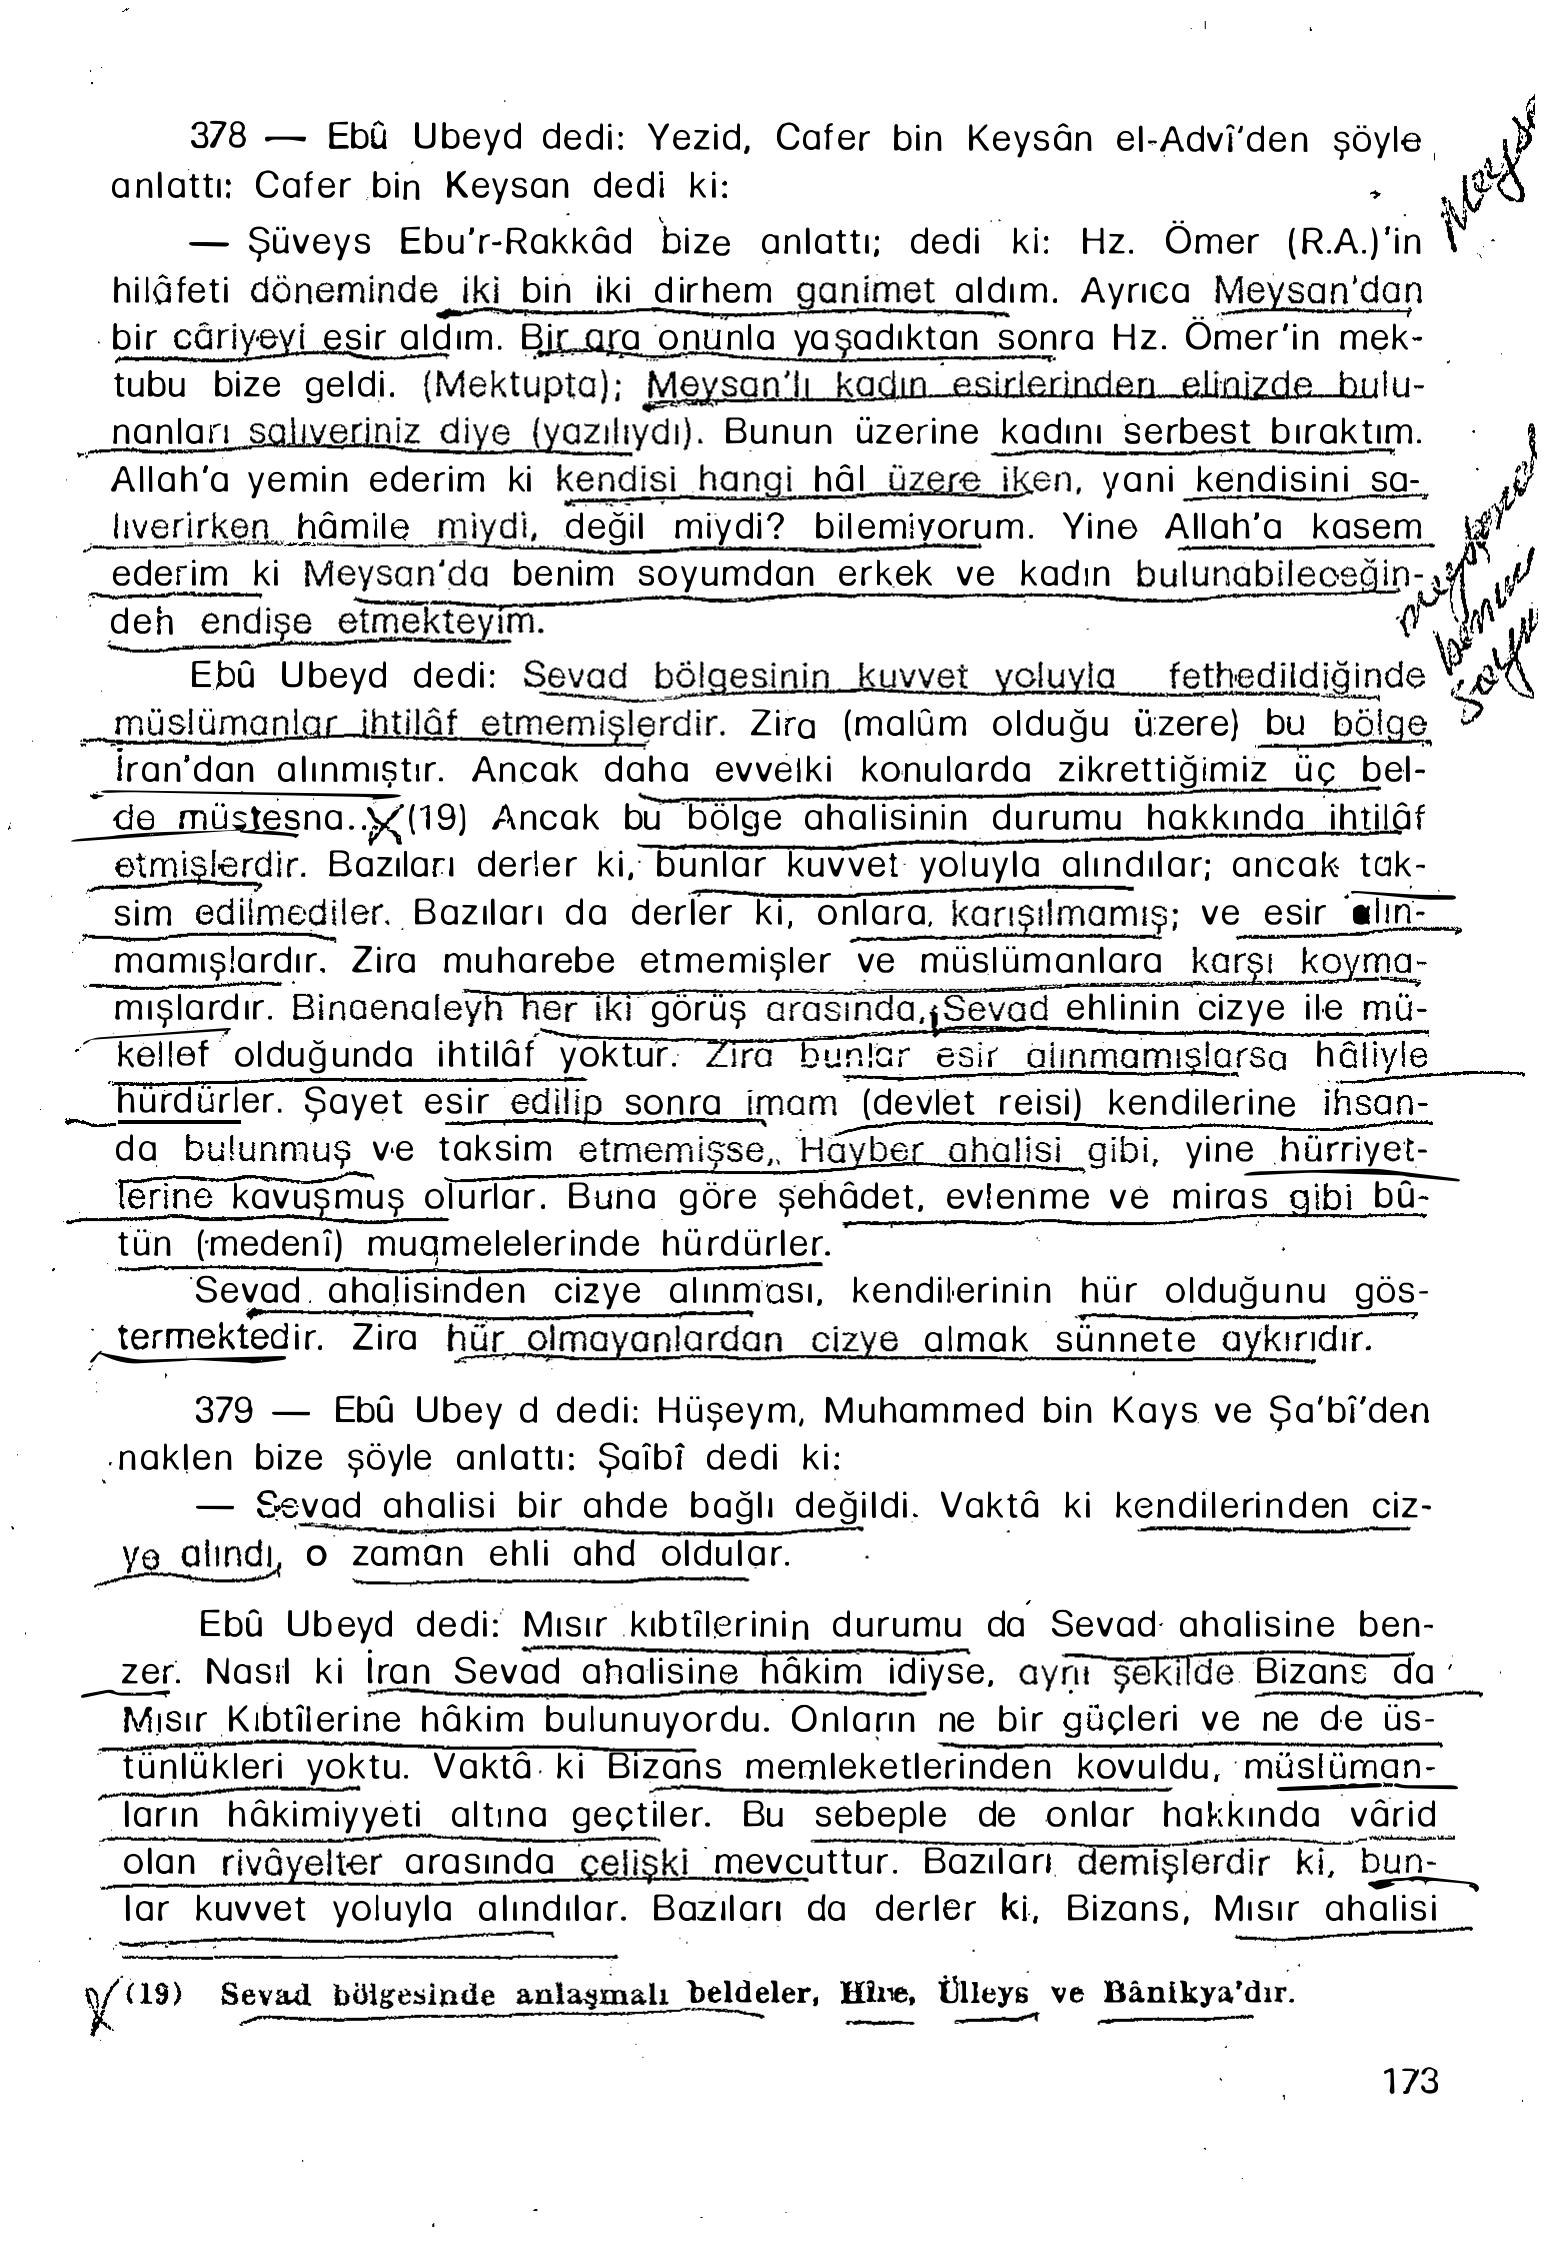 378 — Ebû Ubeyd dedi: Yezid, Cafer bin Keysân el-Advî'den şöyle
anlattı: Cafer bin Keysan dedi ki:
— Şüveys Ebu'r-Rakkâd bize anlattı; dedi ki: Hz. Ömer (R.A.)'in
hilâfeti döneminde iki bin iki dirhem ganimet aldım. Ayrıca Meysan'dan
bir câriyeyi esir aldım. Bir ara onunla yaşadıktan sonra Hz. Ömer'in mek-
tubu bize geldi. (Mektupta); Meysan'lı kadın esirlerinden elinizde bulu-
nanları salıveriniz diye (yazılıydı). Bunun üzerine kadını serbest bıraktım.
Allah'a yemin ederim ki kendisi hangi hâl üzere iken, yani kendisini sa-
lıverirken hâmile miydi, değil miydi? bilemiyorum. Yine Allah'a kasem
ederim ki Meysan'da benim soyumdan erkek ve kadın bulunabileceğin-
deh endişe etmekteyim.
Ebû Ubeyd dedi: Sevad bölgesinin kuvvet yoluyla fethedildiğinde
müslümanlar ihtilâf etmemişlerdir. Zira (malûm olduğu üzere) bu bölge
İran'dan alınmıştır. Ancak daha evvelki konularda zikrettiğimiz üç bel-
de müstesna..(19) Ancak bu bölge ahalisinin durumu hakkında ihtilâf
etmişlerdir. Bazıları derler ki, bunlar kuvvet yoluyla alındılar; ancak tak-
sim edilmediler. Bazıları da derler ki, onlara, karışılmamış; ve esir alın-
mamışlardır. Zira muharebe etmemişler ve müslümanlara karşı koyma-
mışlardır. Binaenaleyh her iki görüş arasında, Sevad ehlinin cizye ile mü-
kellef olduğunda ihtilâf yoktur. Zira bunlar esir alınmamışlarsa hâliyle
hürdürler. Şayet esir edilip sonra imam (devlet reisi) kendilerine ihsan-
da bulunmuş ve taksim etmemişse, Hayber ahalisi gibi, yine hürriyet-
lerine kavuşmuş olurlar. Buna göre şehâdet, evlenme ve miras gibi bü-
tün (medenî) muamelelerinde hürdürler.
Sevad ahalisinden cizye alınması, kendilerinin hür olduğunu gös-
termektedir. Zira hür olmayanlardan cizye almak sünnete aykırıdır.
379 — Ebû Ubey d dedi: Hüşeym, Muhammed bin Kays ve Şa'bî'den
naklen bize şöyle anlattı: Şaîbî dedi ki:
— Sevad ahalisi bir ahde bağlı değildi. Vaktâ ki kendilerinden ciz-
ye alındı, o zaman ehli ahd oldular.
Ebû Ubeyd dedi: Mısır kıbtîlerinin durumu da Sevad ahalisine ben-
zer. Nasıl ki İran Sevad ahalisine hâkim idiyse, aynı şekilde Bizans da
Mısır Kıbtîlerine hâkim bulunuyordu. Onların ne bir güçleri ve ne de üs-
tünlükleri yoktu. Vaktâ ki Bizans memleketlerinden kovuldu, müslüman-
ların hâkimiyyeti altına geçtiler. Bu sebeple de onlar hakkında vârid
olan rivâyelter arasında çelişki mevcuttur. Bazıları demişlerdir ki, bun-
lar kuvvet yoluyla alındılar. Bazıları da derler ki, Bizans, Mısır ahalisi
(19) Sevad bölgesinde anlaşmalı beldeler, Hîre, Ülleys ve Bânikya'dır.
173
benim
soyu